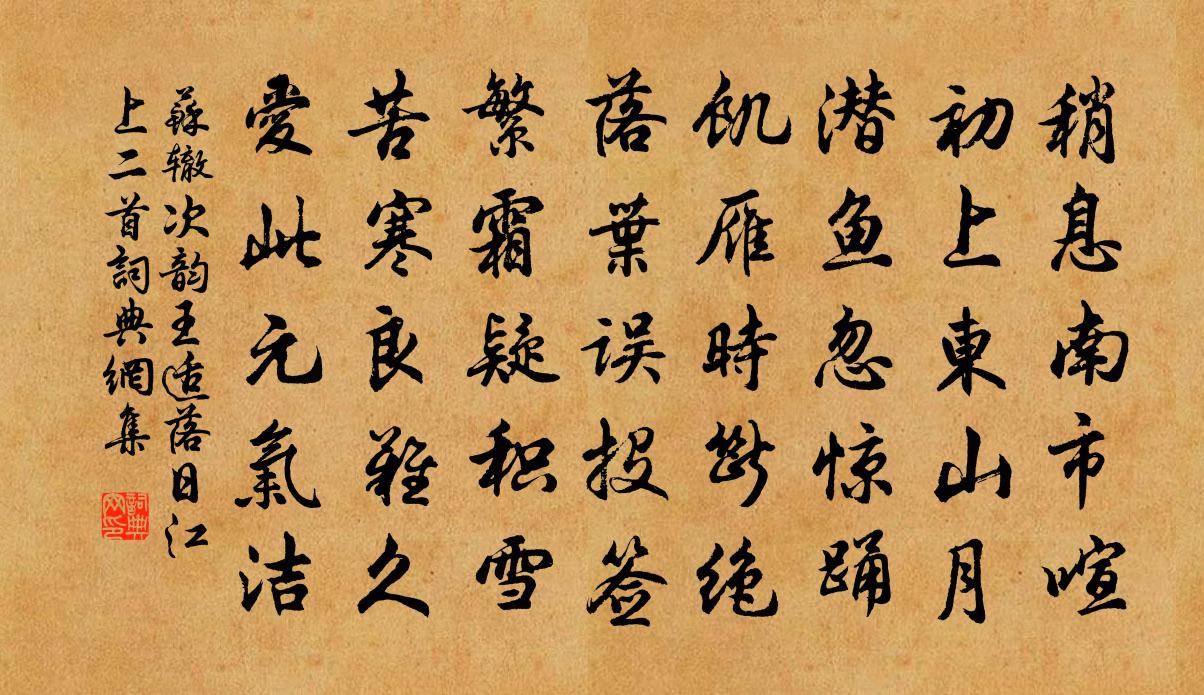 稍息南市喧
初上東山月
潜鱼忽惊踊
飢雁時斷绝
落葉误投签
繁霜疑积雪
苦寒良難久
愛此元氣洁
蘇辙次韵王适落日江
上二首詞典網集
詞典
网印